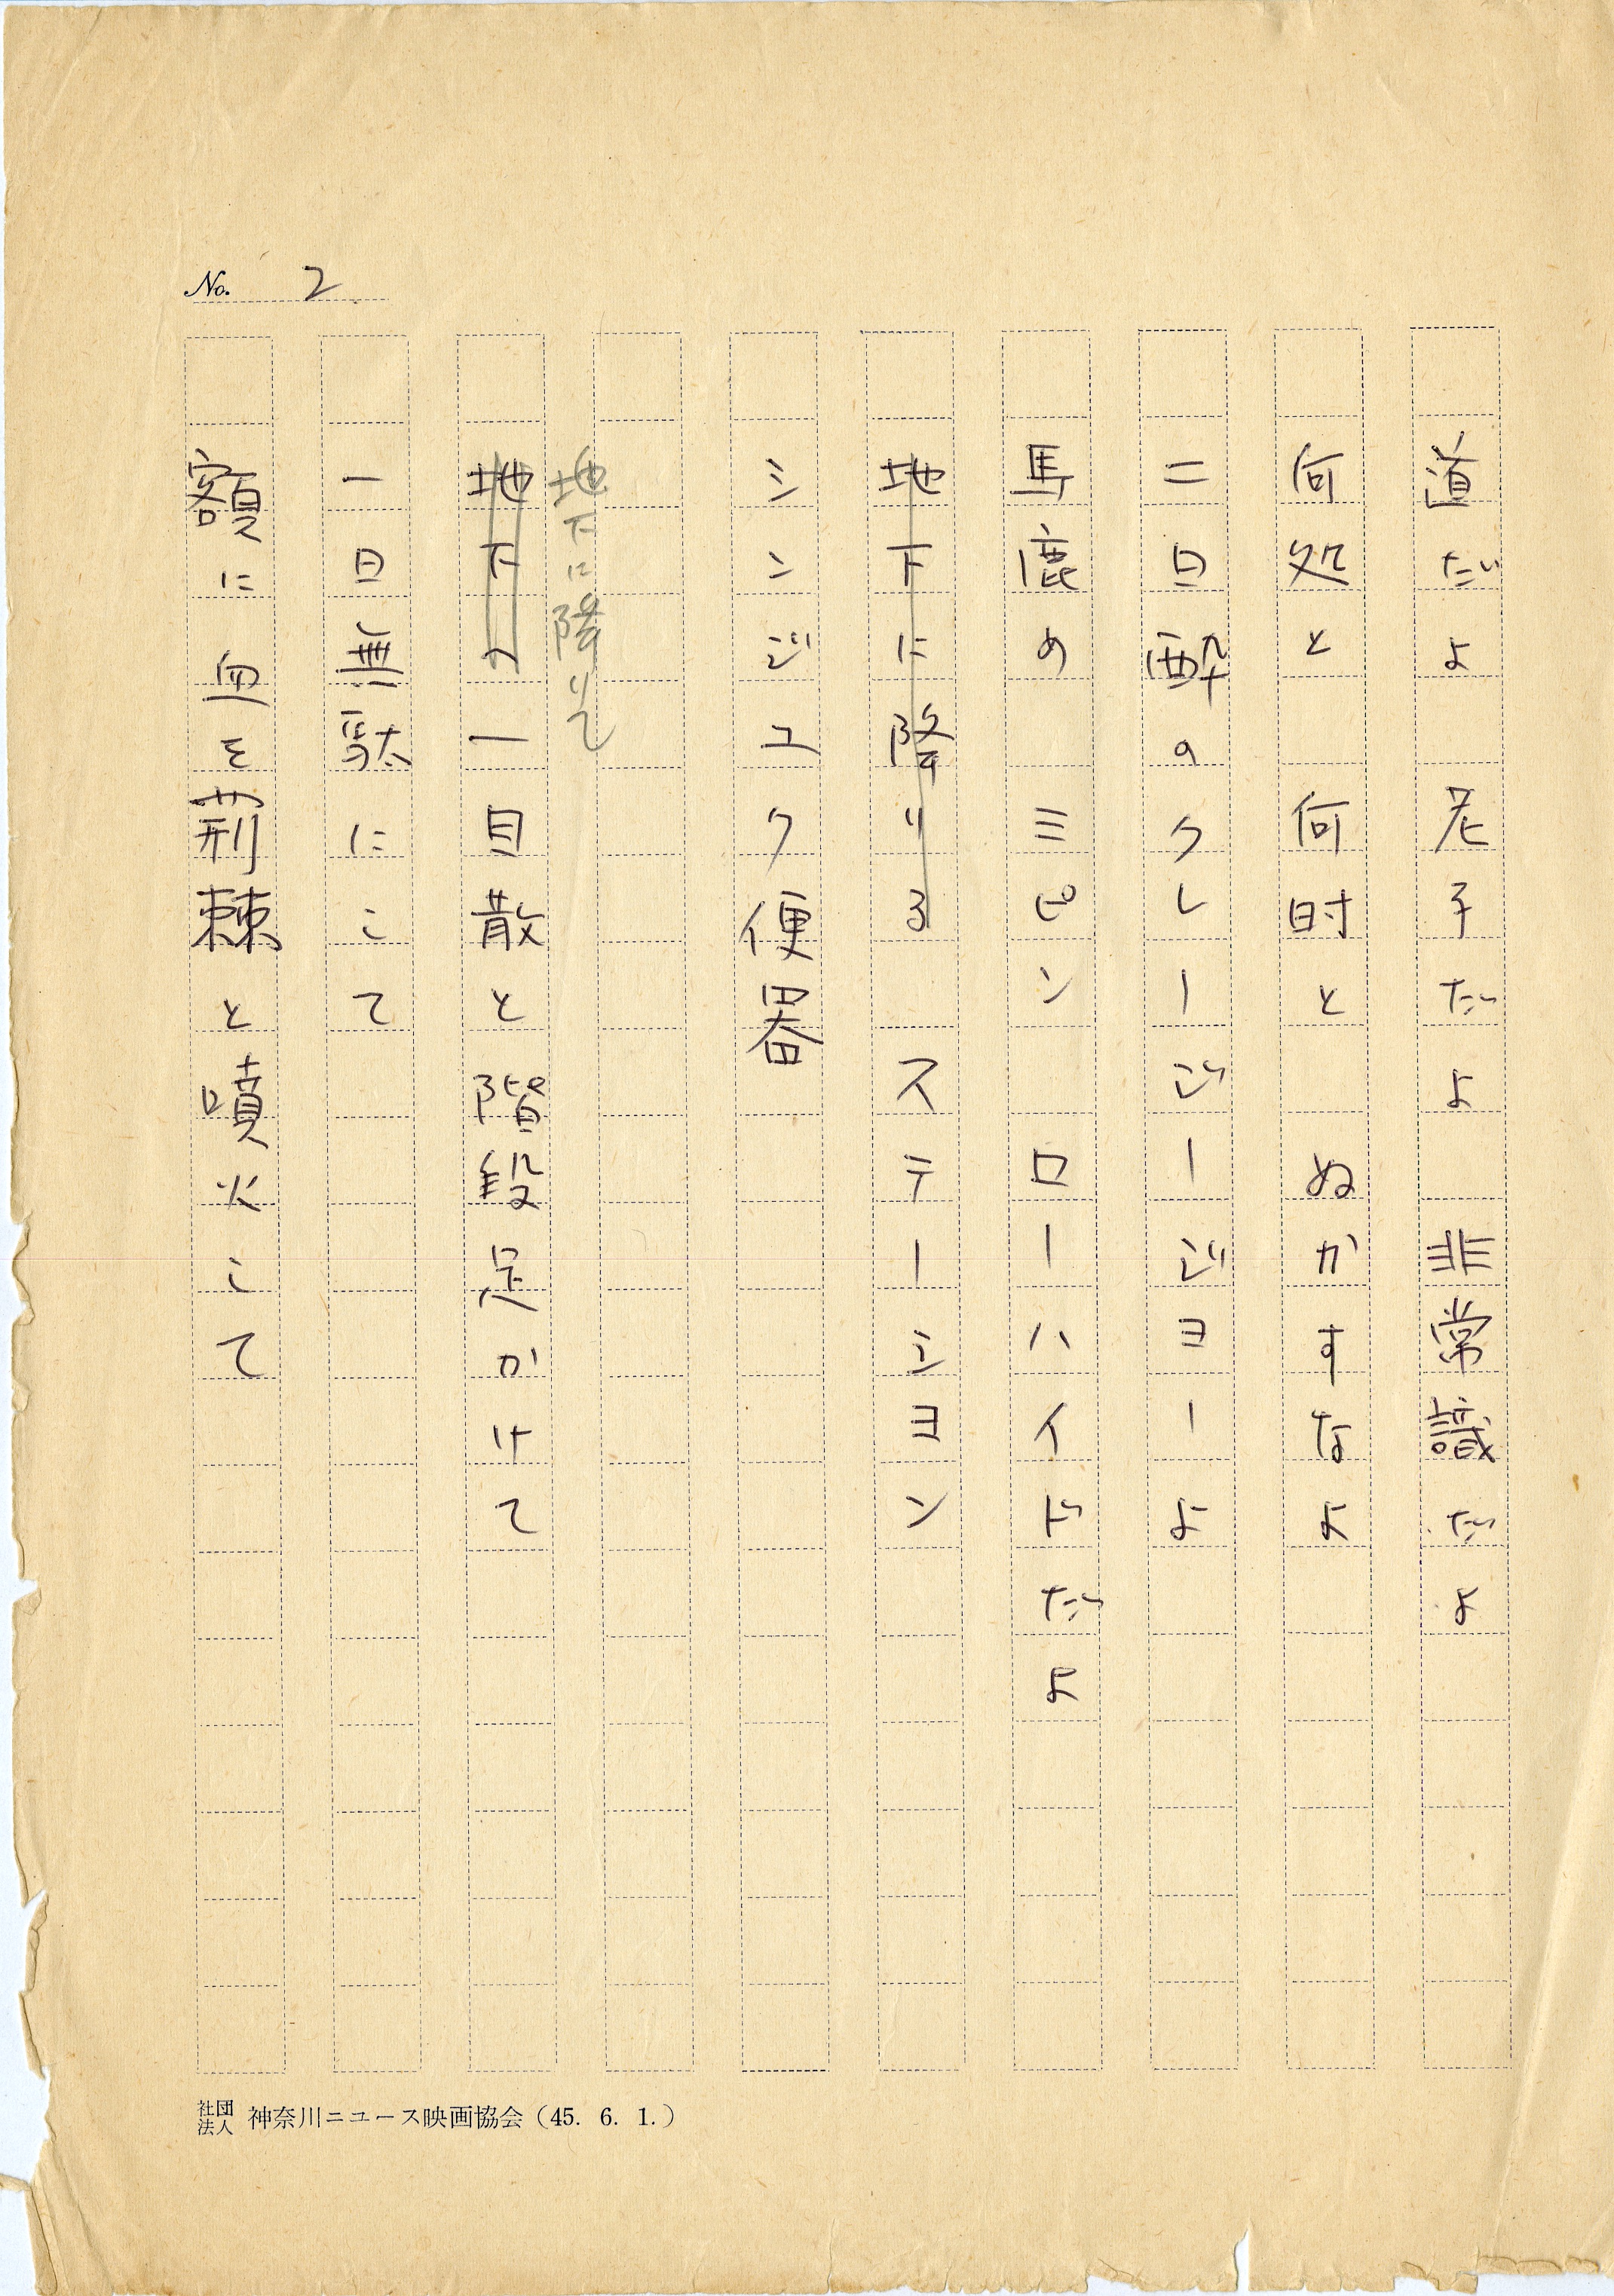 No. 2
道だよ 老子だよ 非常識だよ
何処と 何時と ぬかすなよ
二日酔のクレージージョーよ
馬鹿め ミピンローハイドだよ
地下に降りる ステーション
シンジュク便器
地下に降りて
地下へ一目散と階段足かけて
一日無駄にして
額に血を荊棘と噴火して
社団法人 神奈川ニュース映画協会（45. 6. 1.）